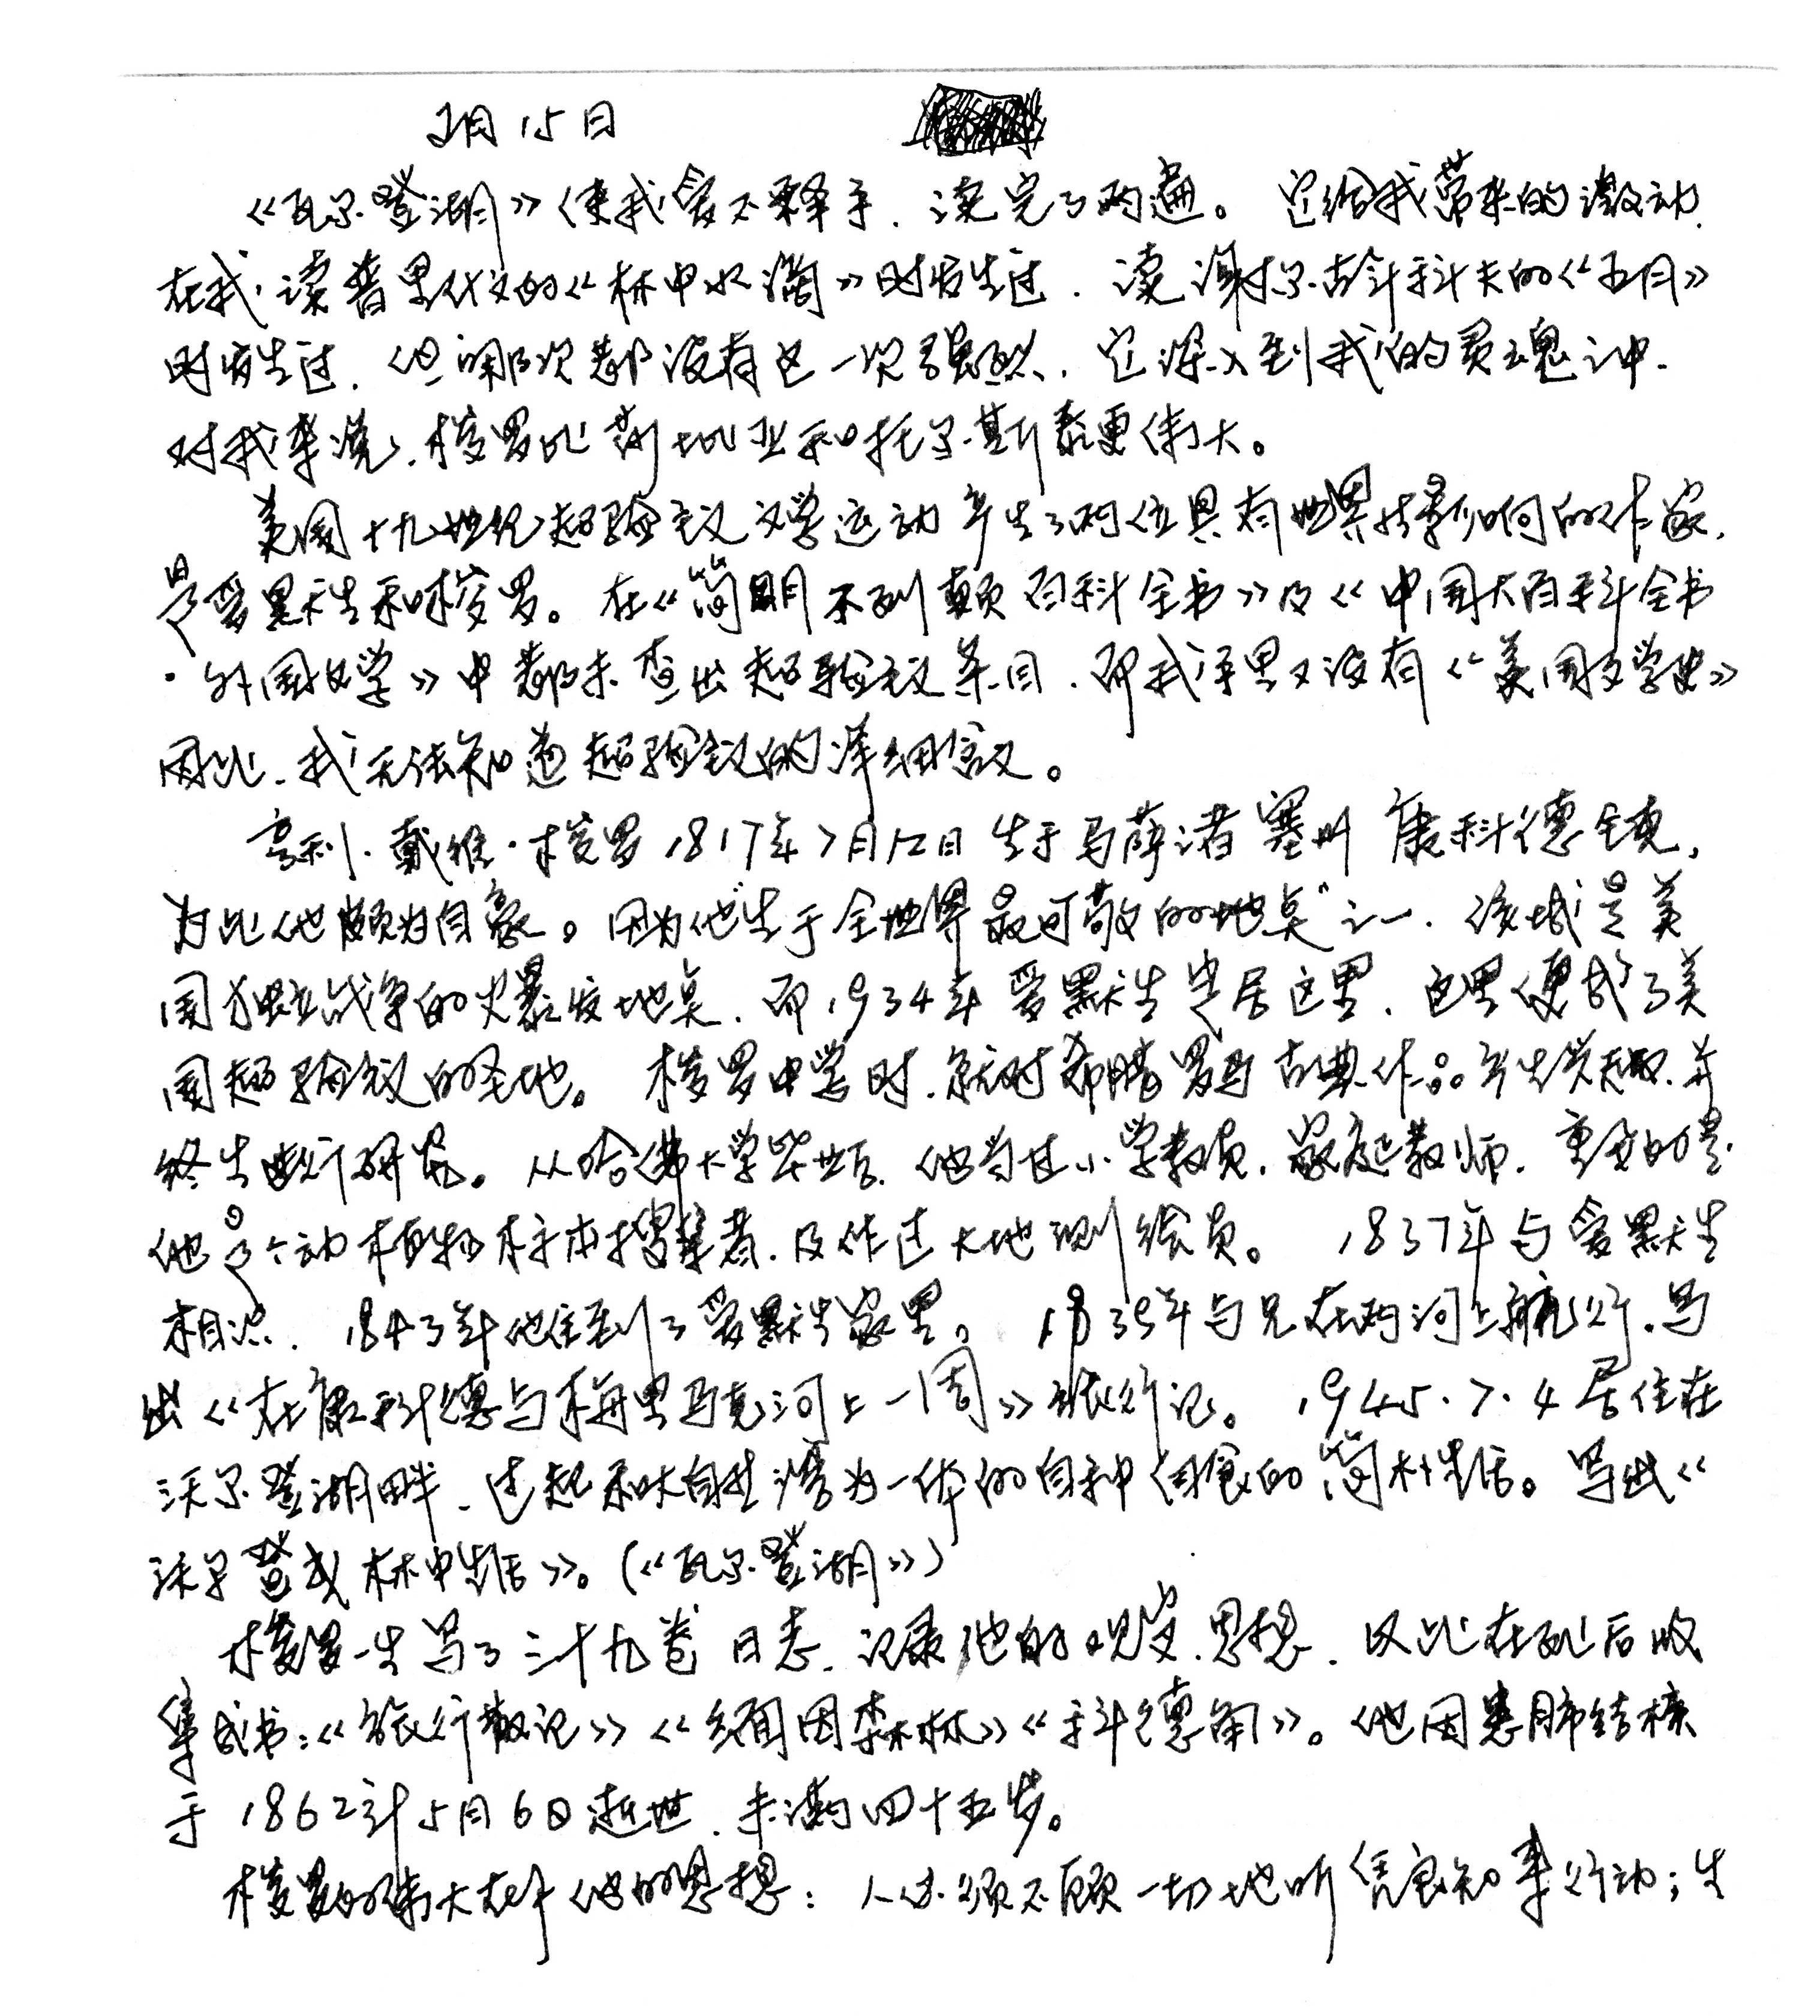 2月15日
《瓦尔登湖》使我爱不释手，读完了两遍。它给我带来的激动，
在我读普里什文的《林中水滴》时发生过，读谢尔古年科夫的《五月》
时发生过，但哪次都没有这一次强烈，它深入到我的灵魂之中。
对我来说，梭罗比莎士比亚和托尔斯泰更伟大。
美国十九世纪超验主义文学运动产生了两位具有世界性影响的作家，
是爱默生和梭罗。在《简明不列颠百科全书》及《中国大百科全书
·外国文学》中都未查出超验主义条目，而我手里又没有《美国文学史》
因此，我无法知道超验主义的详细含义。
亨利·戴维·梭罗1817年7月12日生于马萨诸塞州康科德镇，
为此他颇为自豪。因为他生于全世界最可敬的地点”之一，该城是美
国独立战争的火爆发地点，而1934年爱默生定居这里，这里便成了美
国超验主义的圣地。梭罗中学时，就对希腊罗马古典作品产生兴趣，并
终生进行研究。从哈佛大学毕业后，他当过小学教员，家庭教师，重要的是，
他是个动植物标本搜集者，及作过大地测绘员。1837年与爱默生
相识，1843年他住到了爱默生家里，1839年与兄在两河上航行，写
出《在康科德与梅里马克河上一周》旅行记。1945.7.4居住在
沃尔登湖畔，过起和大自然溶为一体的自种自食的简朴生活。写出《
沃尔登或林中生活》。（《瓦尔登湖》）
梭罗一生写了三十九卷日志，记录他的观察、思想，以此在死后收
集成书：《旅行散记》《缅因森林》《科德角》。他因患肺结核
于1862年5月6日逝世，未满四十五岁。
梭罗的伟大在于他的思想：人必须不顾一切地听凭良知来行动；生